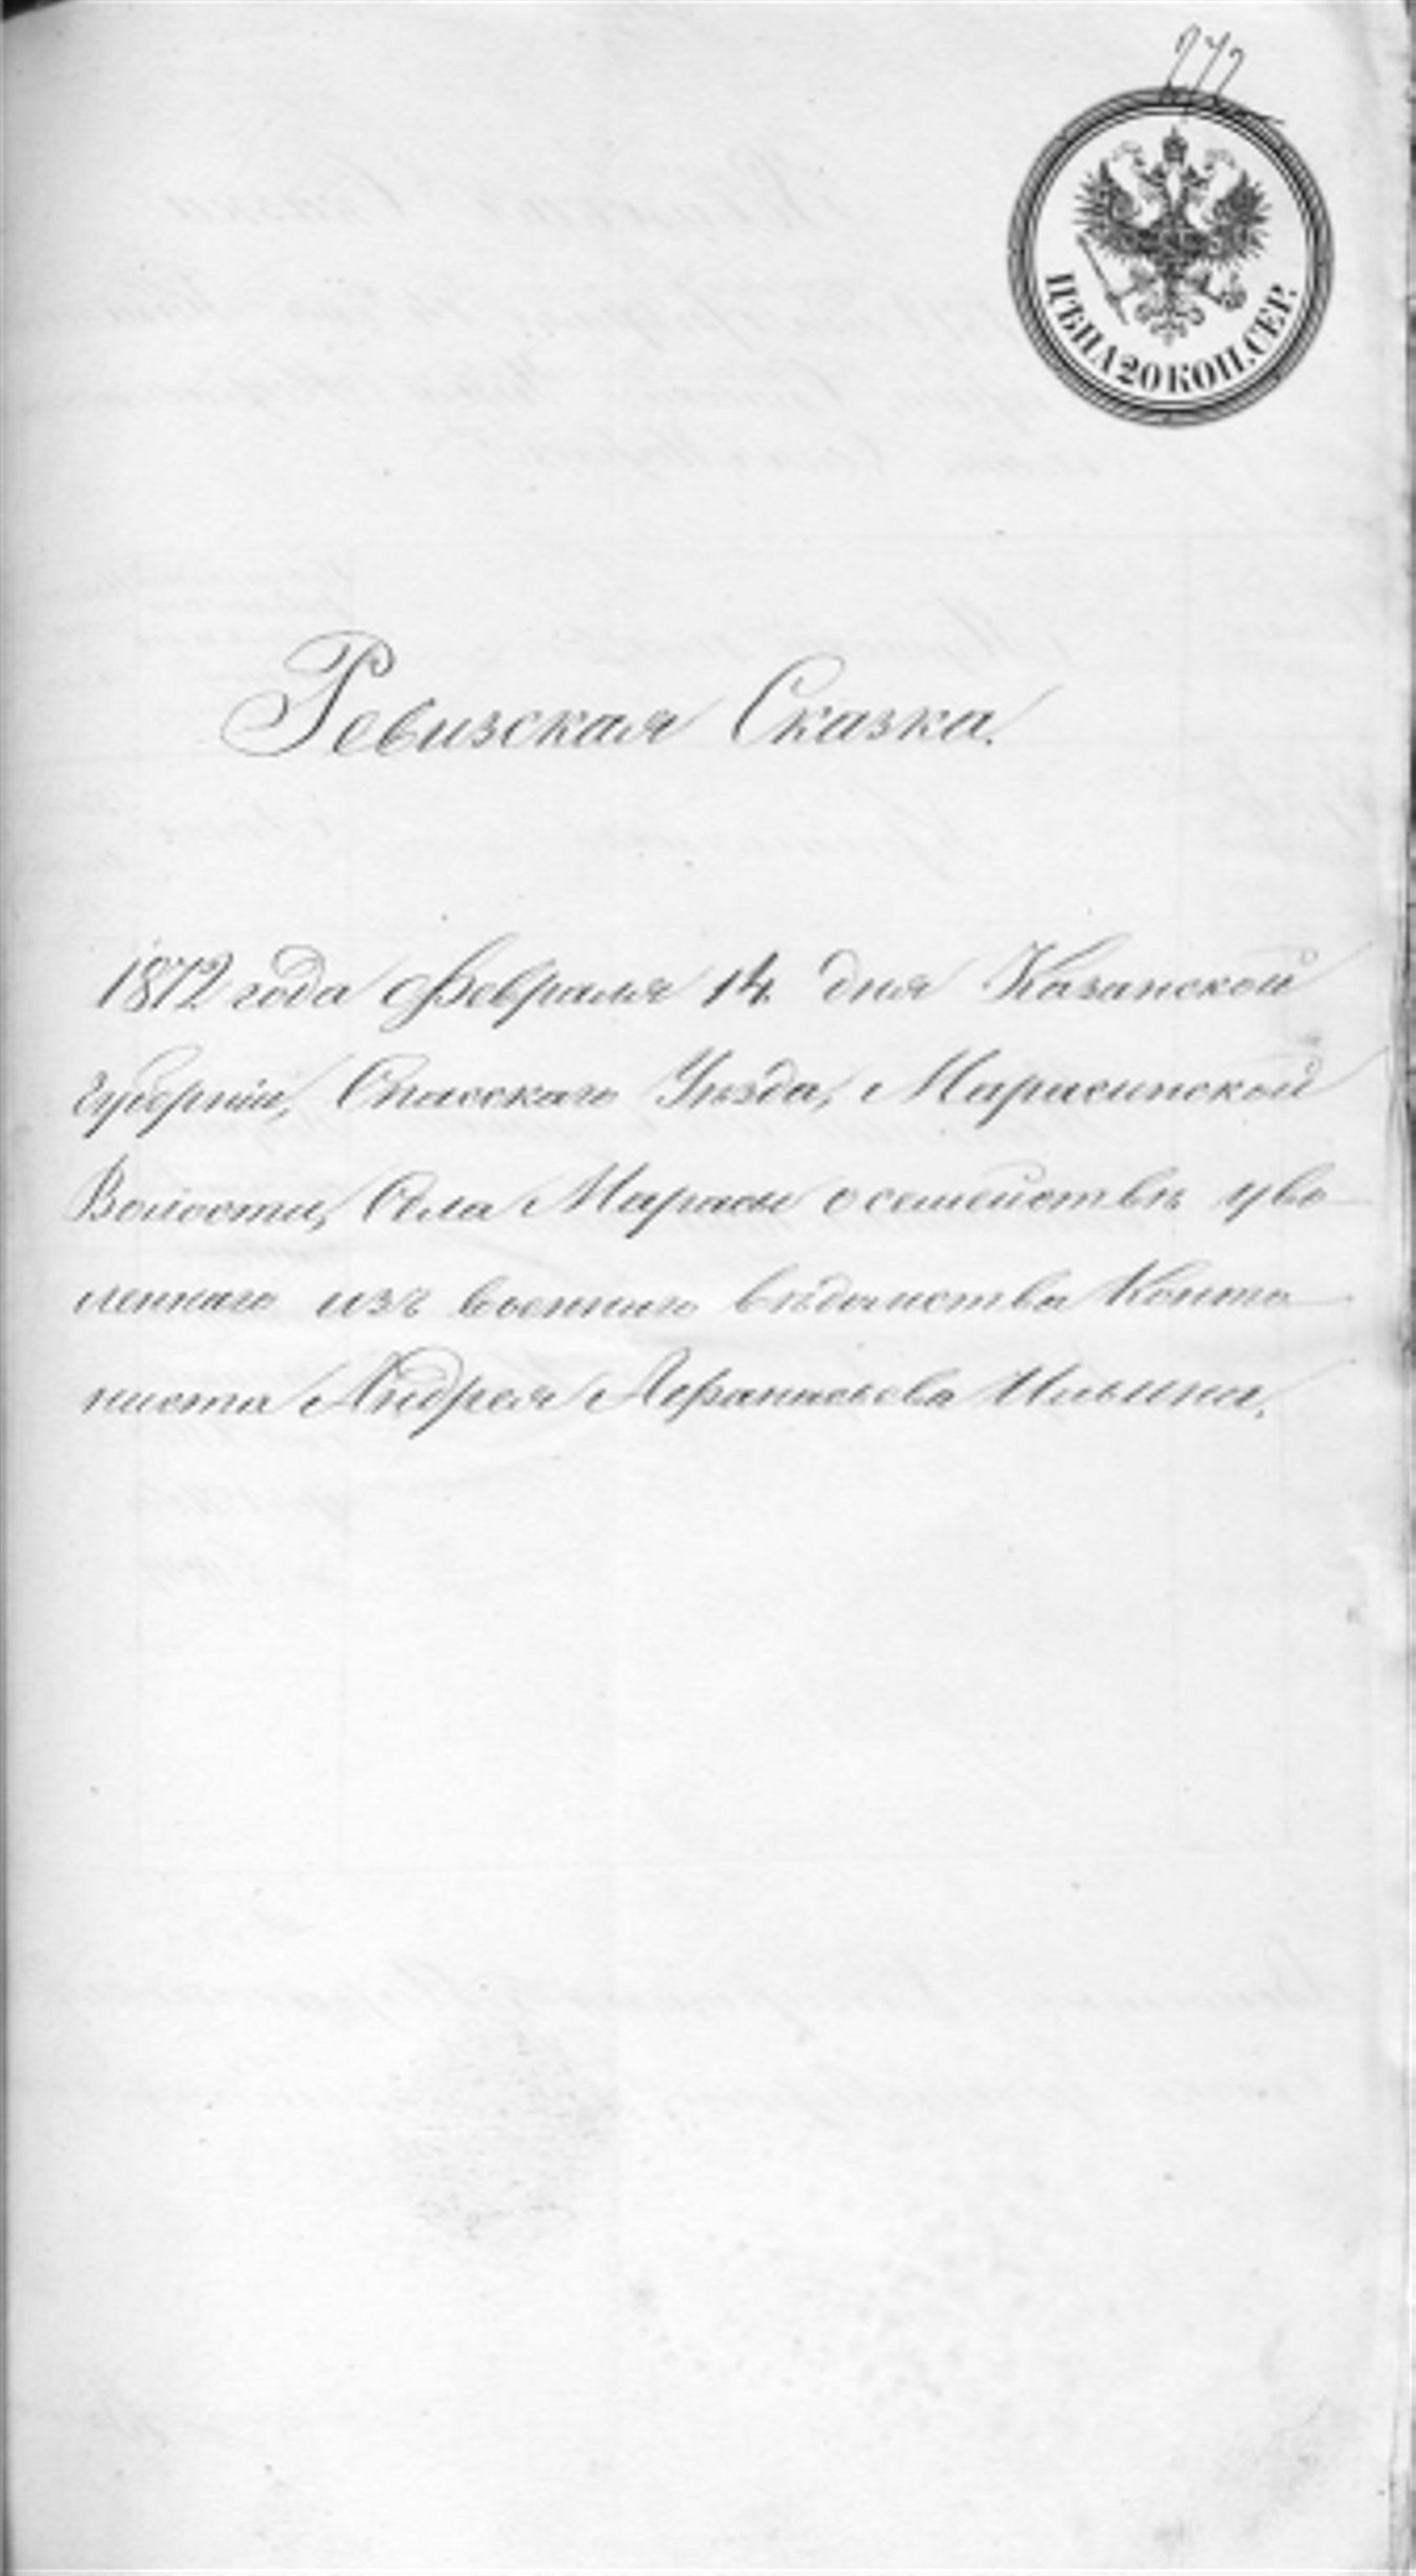 272
ЦѢНА 20 КОП. СЕР.
Ревизская Сказка.
1872 года Февраля 14 дня Казанской
губерніи, Спасскаго Уѣзда, Марасинской
Волости, Села Марасы о семействѣ уво
леннаго изъ военнаго вѣдомства Канто
ниста Андрея Афанасьева Ильина.